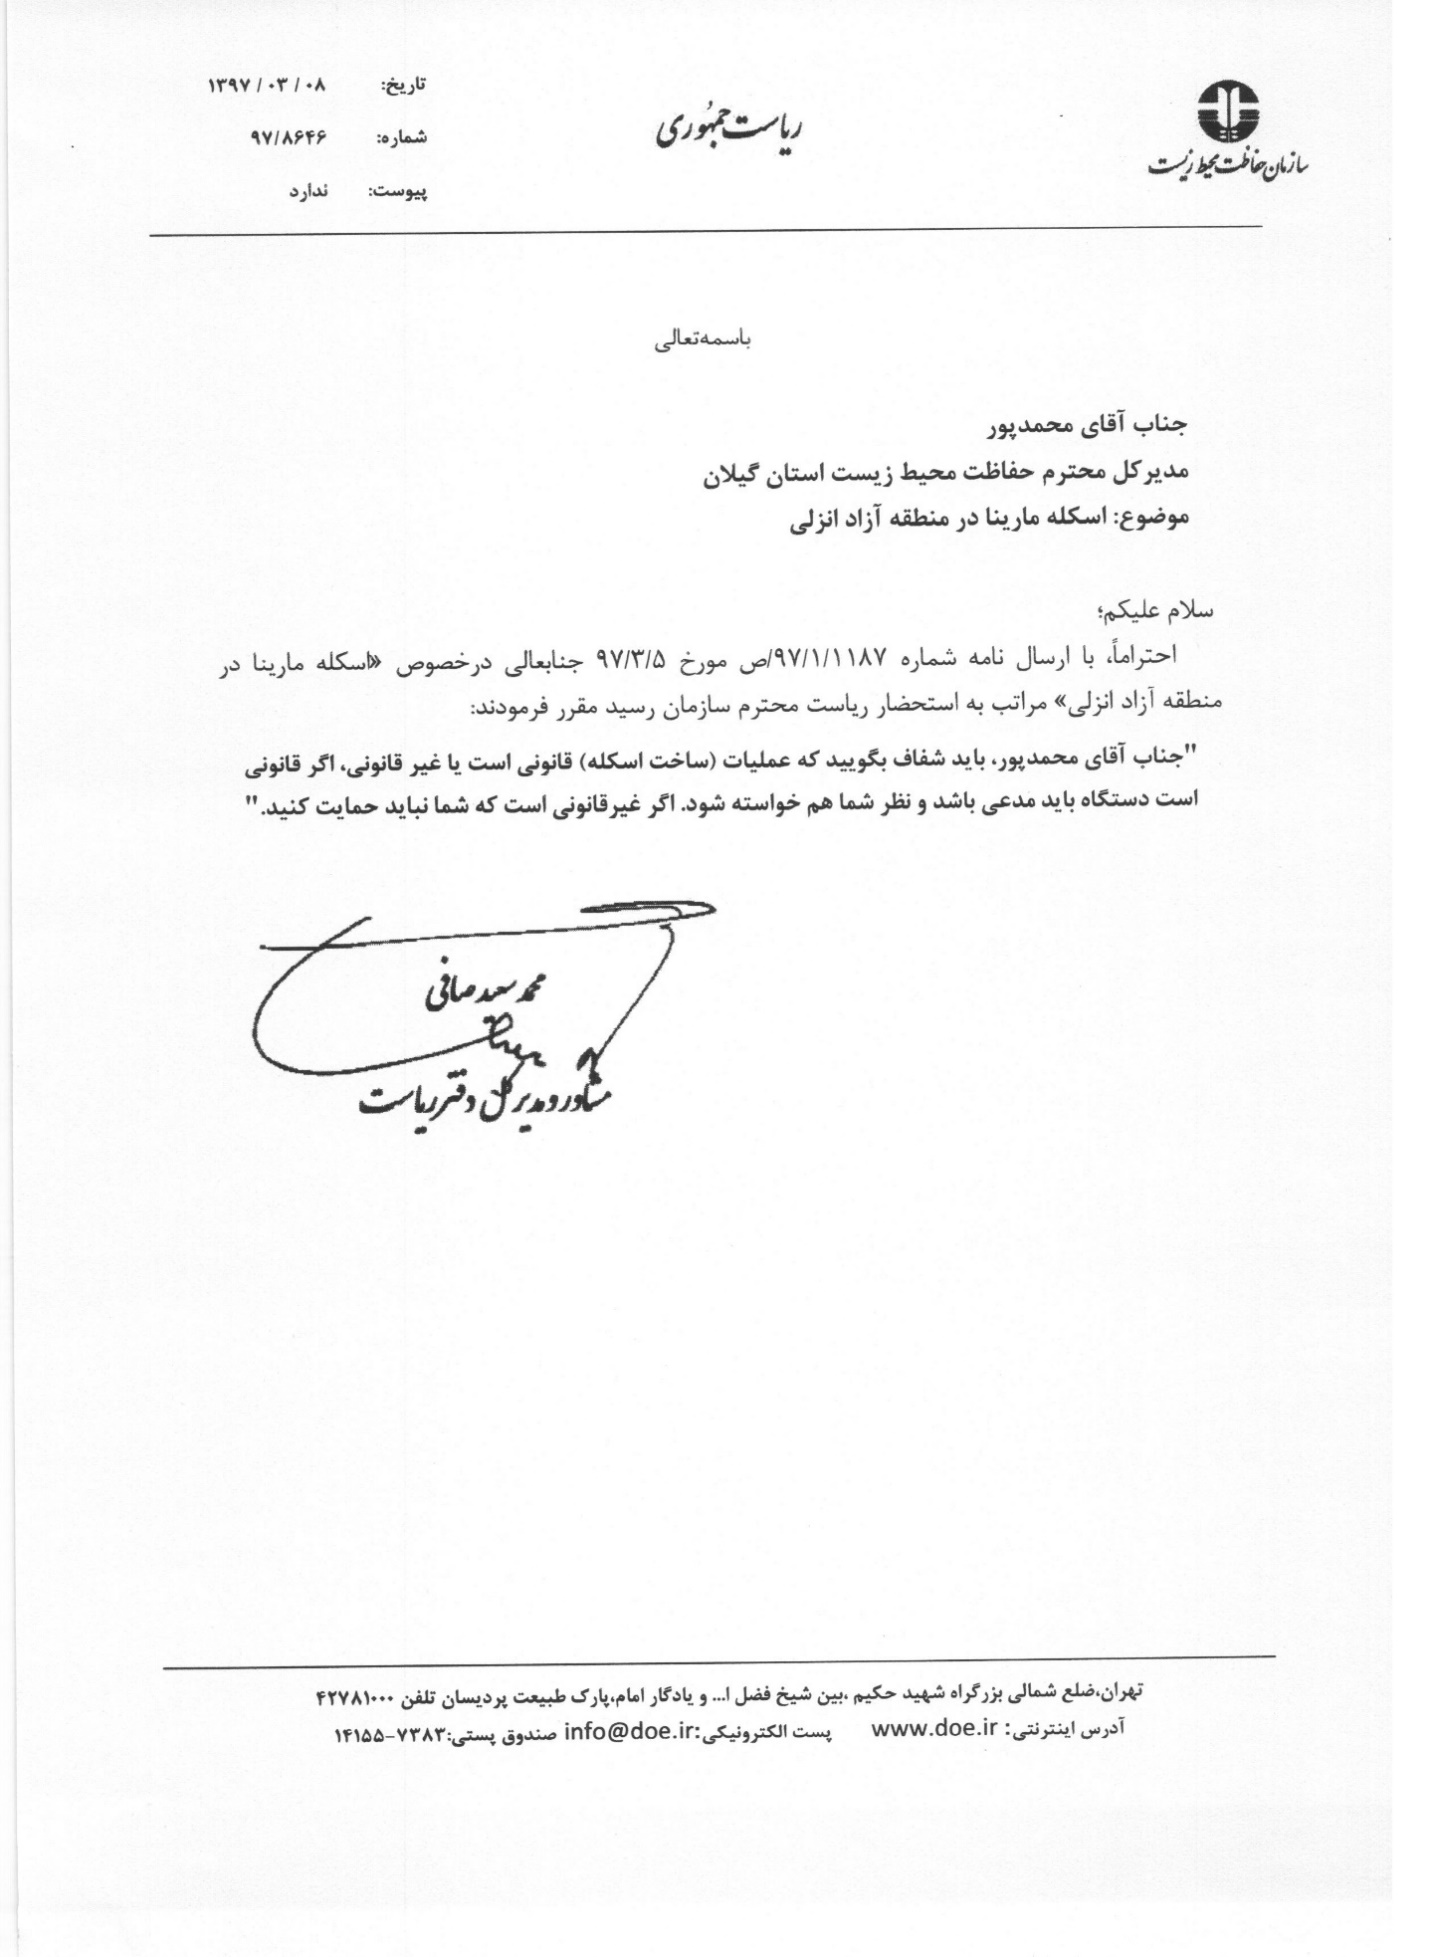 سازمان حفاظت محیط زیست
ریاست جمهوری
تاریخ: ۱۳۹۷/۰۳/۰۸
شماره: ۹۷/۸۶۴۶
پیوست: ندارد
باسمه‌تعالی
جناب آقای محمدپور
مدیرکل محترم حفاظت محیط زیست استان گیلان
موضوع: اسکله مارینا در منطقه آزاد انزلی
سلام علیکم؛
احتراماً، با ارسال نامه شماره ۹۷/۱/۱۱۸۷/ص مورخ ۹۷/۳/۵ جنابعالی درخصوص «اسکله مارینا در
منطقه آزاد انزلی» مراتب به استحضار ریاست محترم سازمان رسید مقرر فرمودند:
"جناب آقای محمدپور، باید شفاف بگویید که عملیات (ساخت اسکله) قانونی است یا غیر قانونی، اگر قانونی
است دستگاه باید مدعی باشد و نظر شما هم خواسته شود. اگر غیرقانونی است که شما نباید حمایت کنید."
محمد سعید صافی
مشاور و مدیر کل دفتر ریاست
تهران،ضلع شمالی بزرگراه شهید حکیم ،بین شیخ فضل ا... و یادگار امام،پارک طبیعت پردیسان تلفن ۴۲۷۸۱۰۰۰
آدرس اینترنتی: www.doe.ir پست الکترونیکی:info@doe.ir صندوق پستی:۷۳۸۳-۱۴۱۵۵